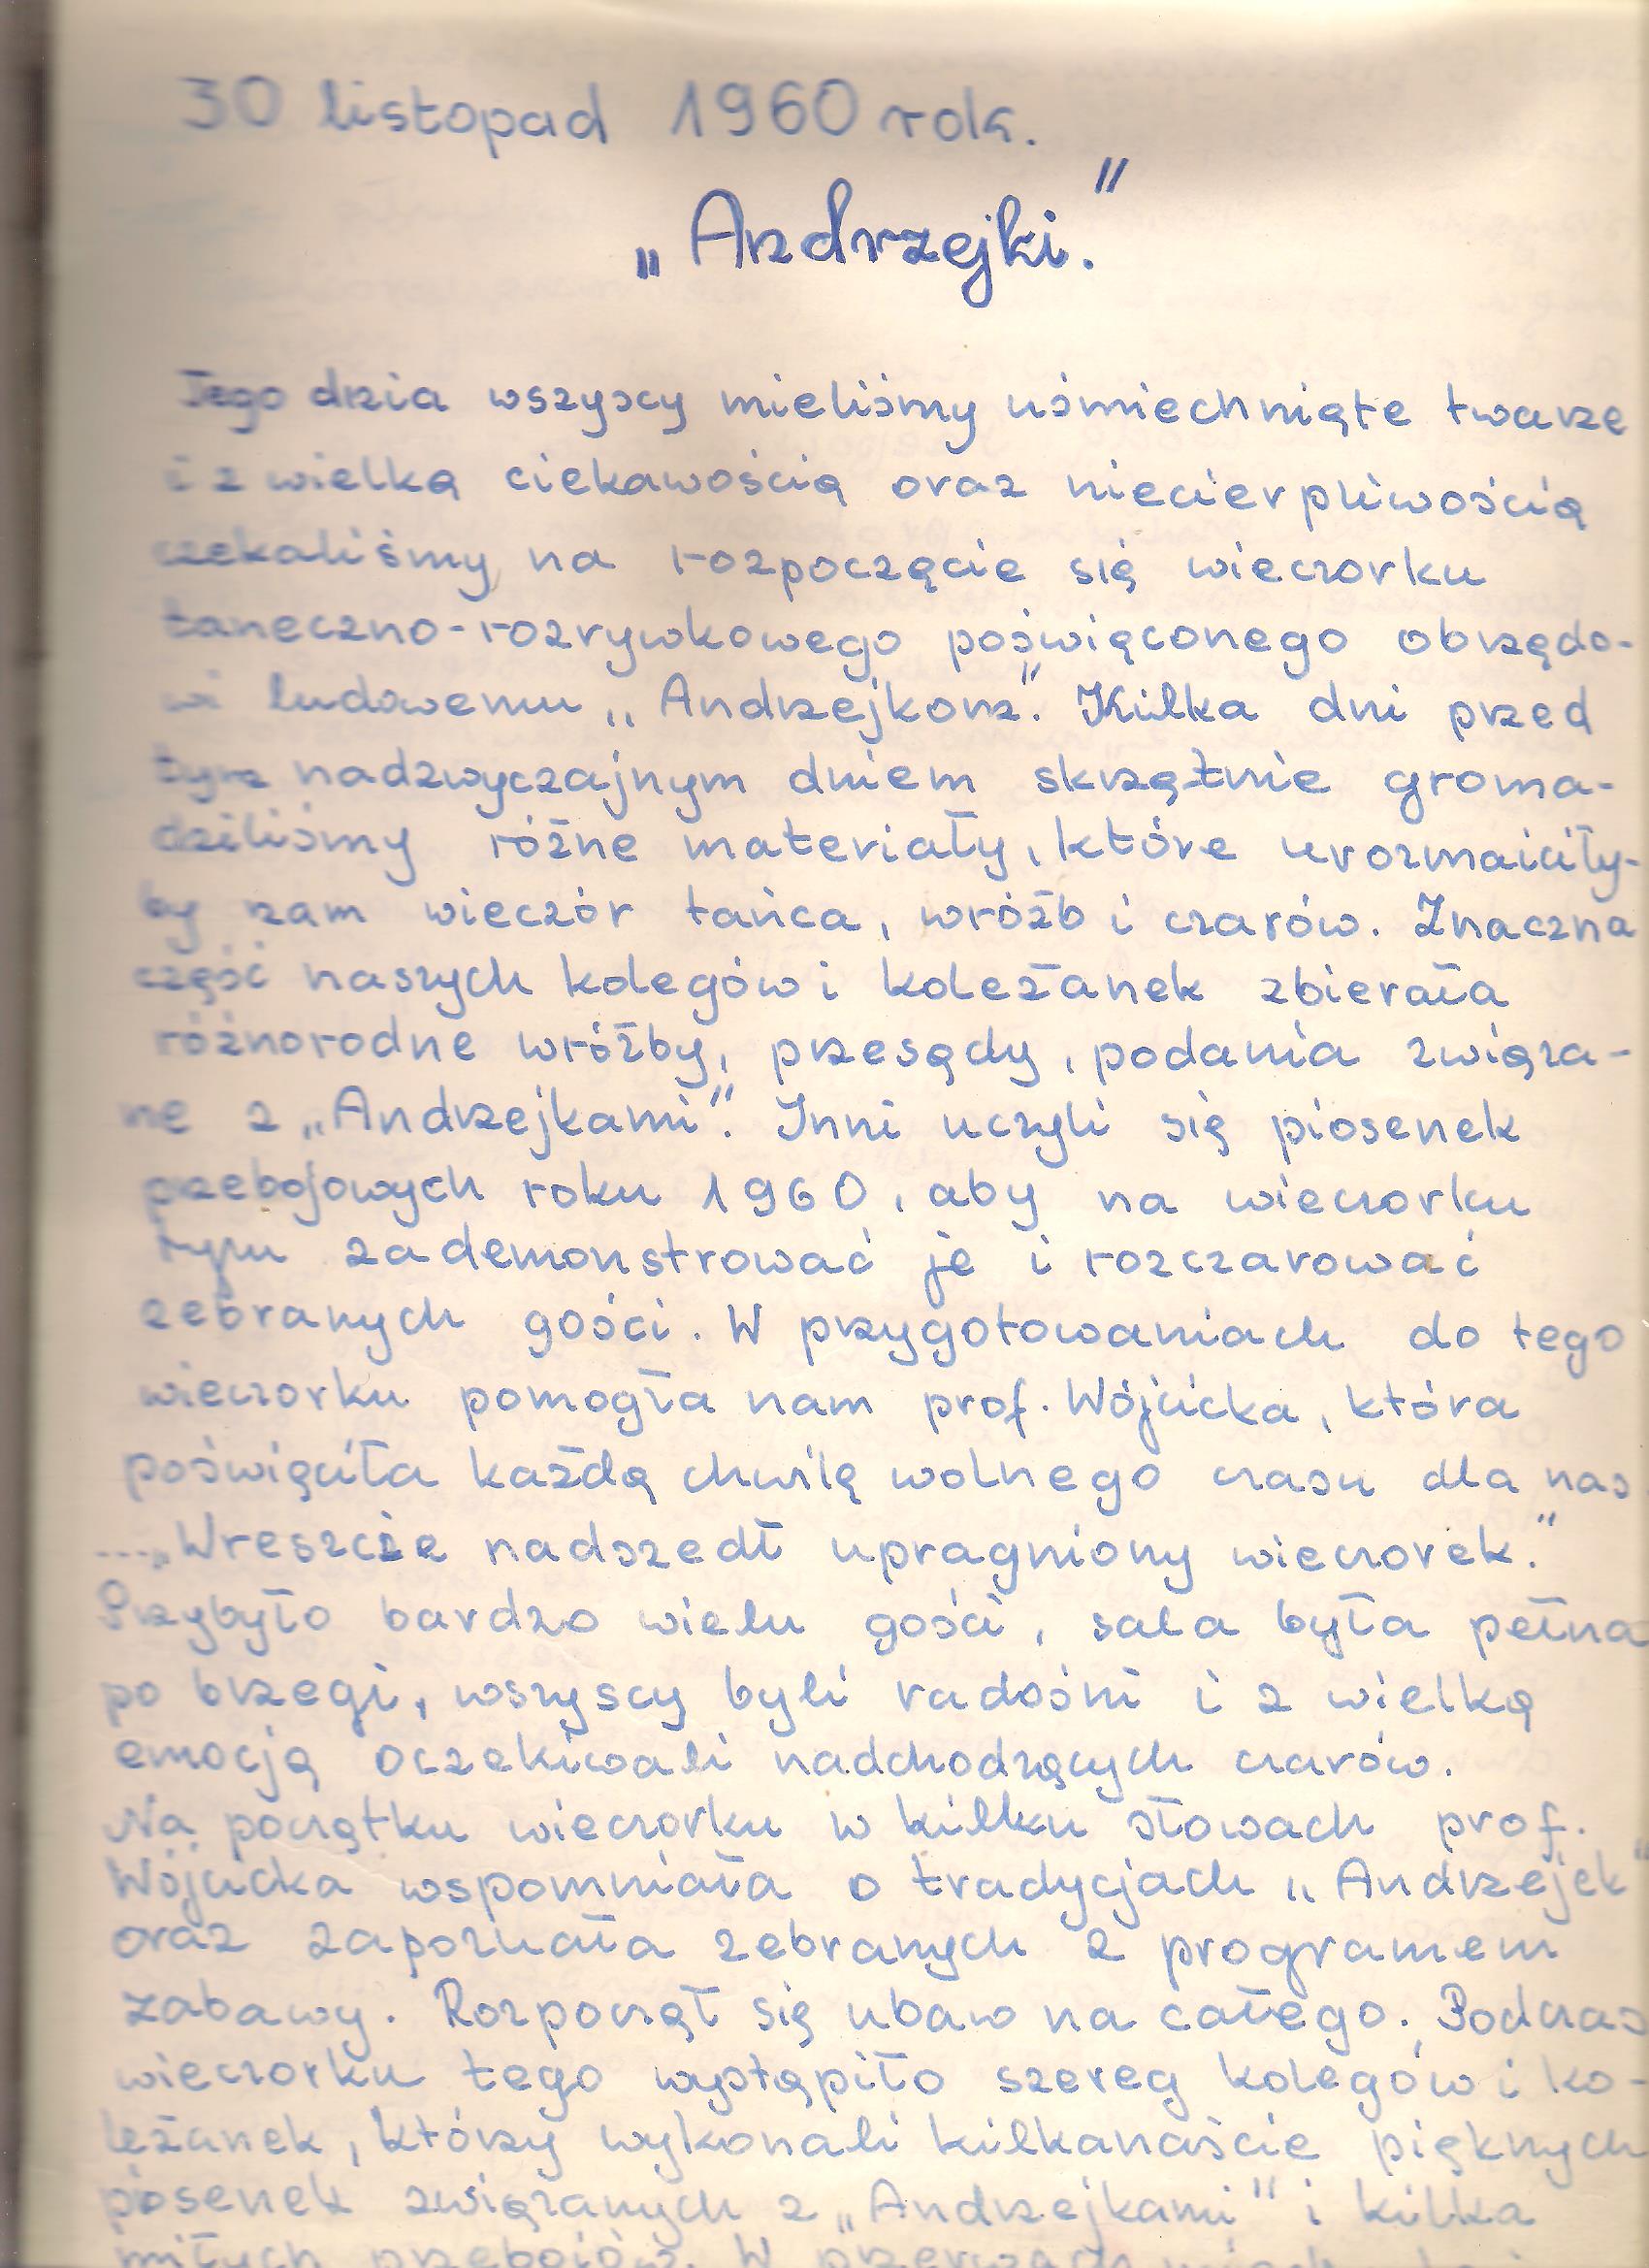 30 listopad 1960 rok.
„Andrzejki."
Tego dnia wszyscy mieliśmy uśmiechnięte twarze
i z wielką ciekawością oraz niecierpliwością
czekaliśmy na rozpoczęcie się wieczorku
taneczno-rozrywkowego poświęconego obrzędo-
wi ludowemu „Andrzejkom". Kilka dni przed
tym nadzwyczajnym dniem skrzętnie groma-
dziliśmy różne materiały, które urozmaiciły-
by nam wieczór tańca, wróżb i czarów. Znaczna
część naszych kolegów i koleżanek zbierała
różnorodne wróżby, przesądy, podania związa-
ne z „Andrzejkami". Inni uczyli się piosenek
przebojowych roku 1960, aby na wieczorku
tym zademonstrować je i rozczarować
zebranych gości. W przygotowaniach do tego
wieczorku pomogła nam prof. Wójcicka, która
poświęciła każdą chwilę wolnego czasu dla nas
...„Wreszcie nadszedł upragniony wieczorek."
Przybyło bardzo wielu gości, sala była pełna
po brzegi, wszyscy byli radośni i z wielką
emocją oczekiwali nadchodzących czarów.
Na początku wieczorku w kilku słowach prof.
Wójcicka wspomniała o tradycjach „Andrzejek"
oraz zapoznała zebranych z programem
zabawy. Rozpoczął się ubaw na całego. Podczas
wieczorku tego wystąpiło szereg kolegów i ko-
leżanek, którzy wykonali kilkanaście pięknych
piosenek związanych z „Andrzejkami" i kilka
miłych przebojów. W przerwach